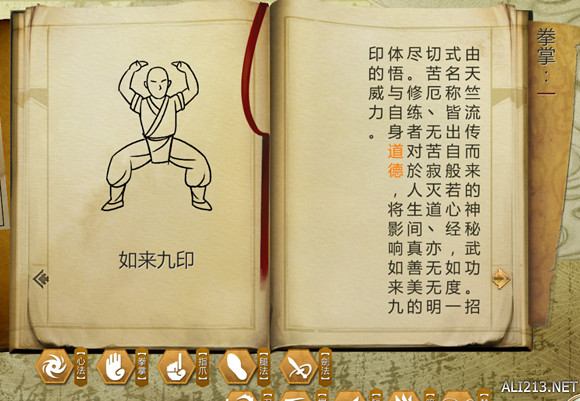 拳掌：一
由天竺流传而来的神秘武功。招
式名称皆出自般若心经，如度一
切苦厄、无苦寂灭道、亦无无明
尽。修练者对於人生间真善美的
体悟与自身道德，将影响如来九
印的威力。
如来九印
心法
拳掌
指爪
腿法
剑法
ALI213.NET